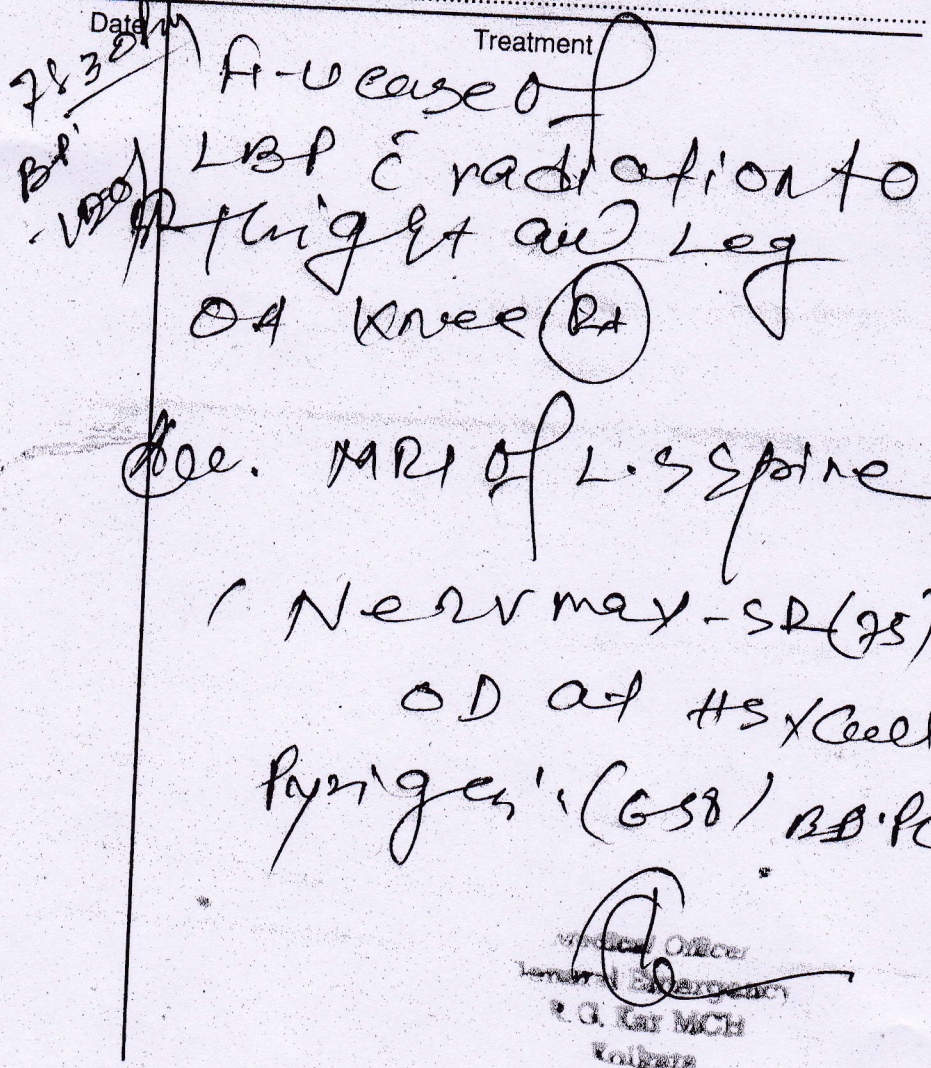 Date
Treatment
BP
A-U case of
LBP c̄ radiation to
thight and Leg
OA Knee Rt
MRI of L.S Spine
Nervmax-SR (75)
OD at HS x
(658) BD. PC
Medical Officer
General Emergency
R. G. Kar MCH
Kolkata